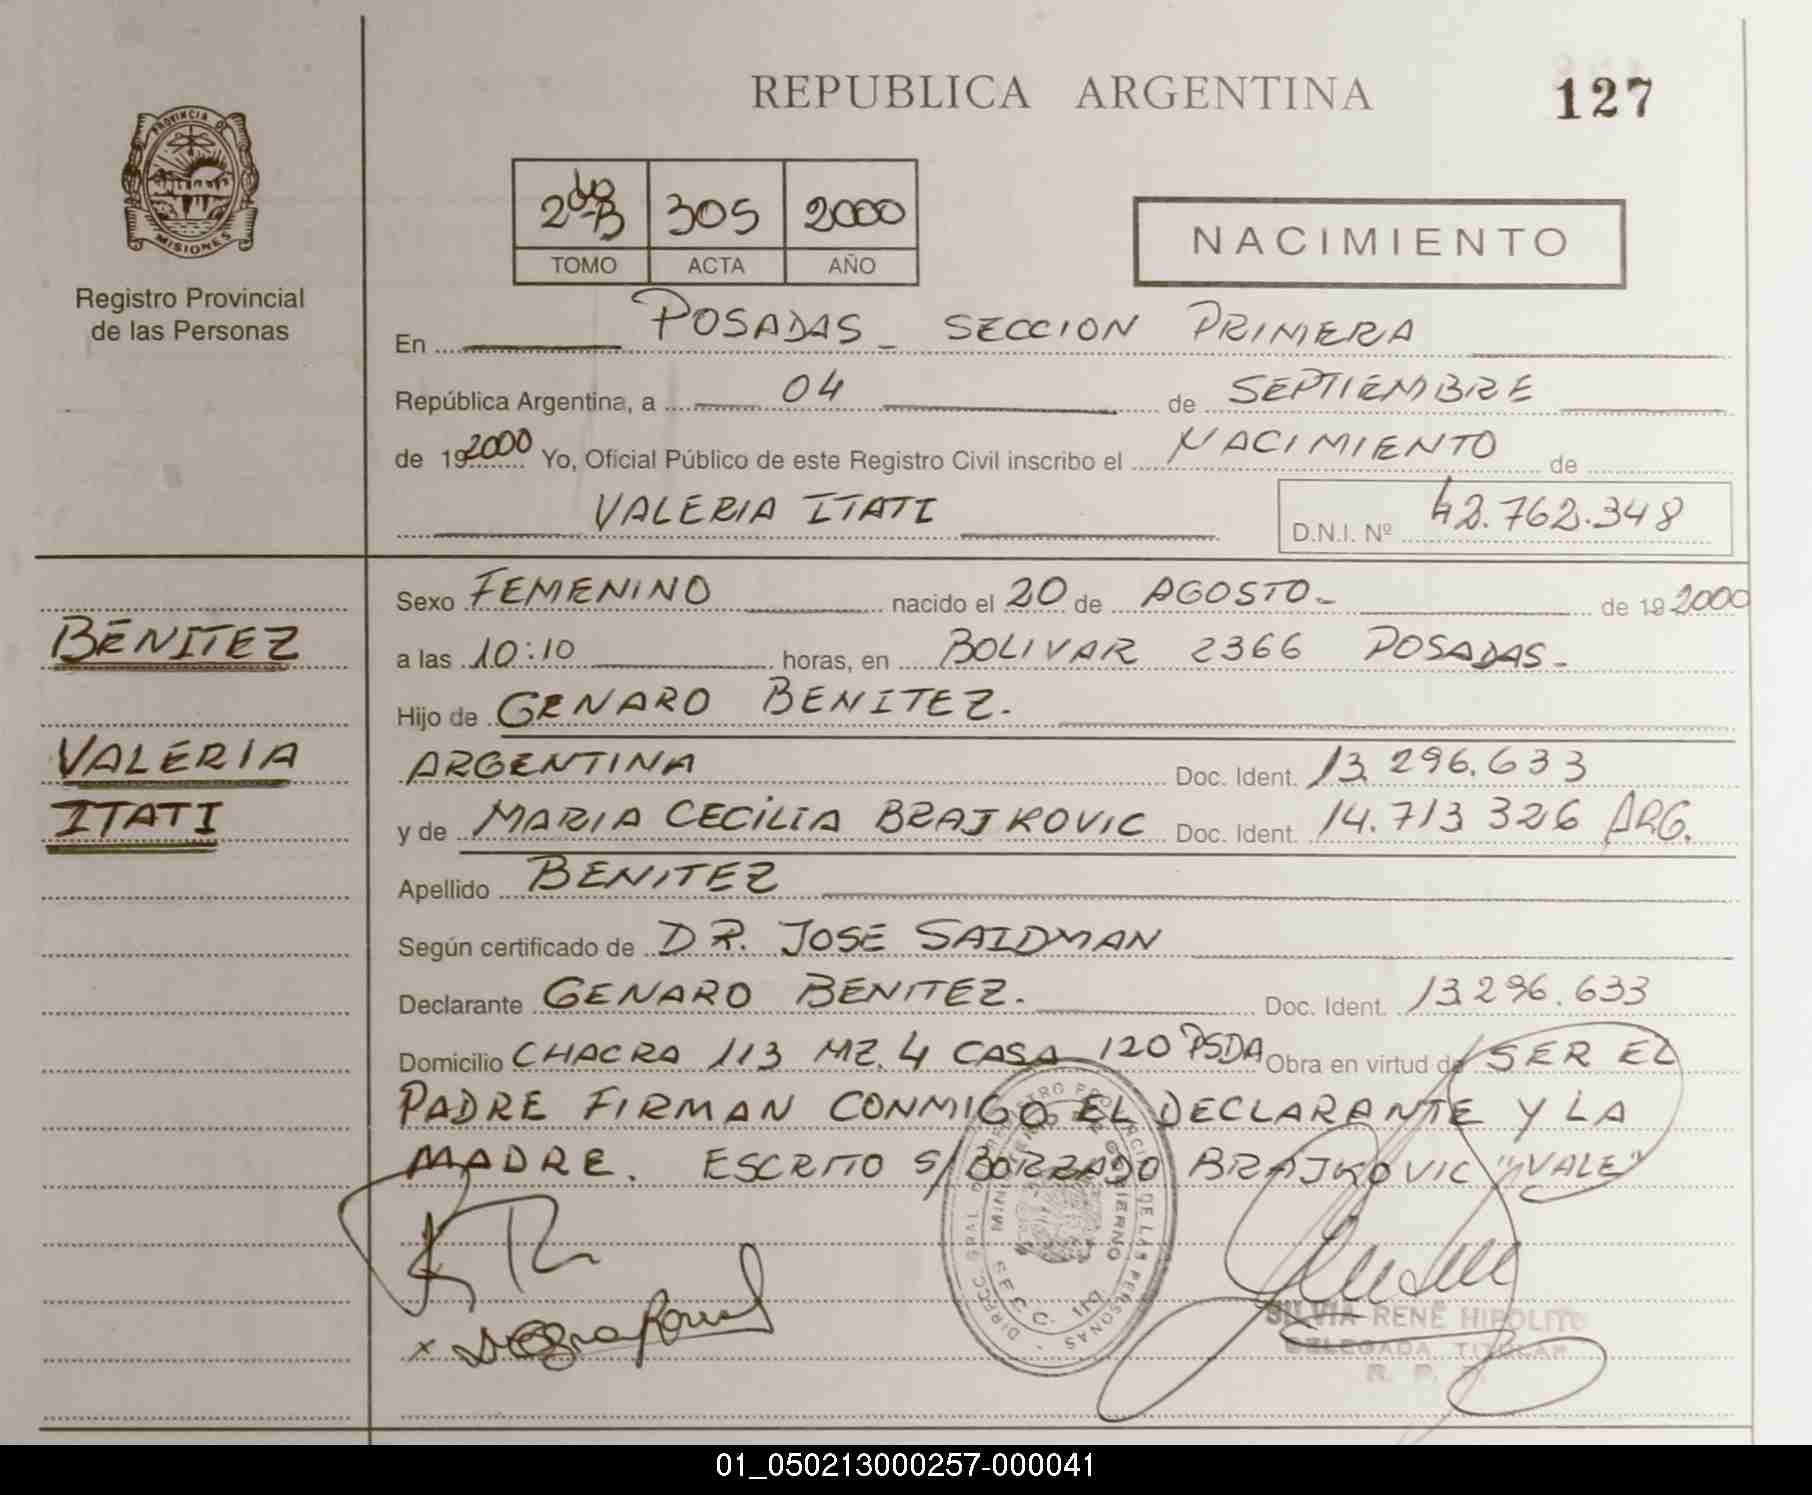 REPUBLICA ARGENTINA
127
PROVINCIA DE
MISIONES
Registro Provincial
de las Personas
2do B 305 2000
TOMO ACTA AÑO
NACIMIENTO
En POSADAS - SECCION PRIMERA
República Argentina, a 04 de SEPTIEMBRE
de 192000 Yo, Oficial Público de este Registro Civil inscribo el NACIMIENTO de
VALERIA ITATI D.N.I. Nº 42.762.348
BENITEZ
VALERIA
ITATI
Sexo FEMENINO nacido el 20 de AGOSTO - de 19 2000
a las 10:10 horas, en BOLIVAR 2366 POSADAS -
Hijo de GENARO BENITEZ.
ARGENTINA Doc. Ident. 13.296.633
y de MARIA CECILIA BRAJKOVIC Doc. Ident. 14.713 326 ARG.
Apellido BENITEZ
Según certificado de DR. JOSE SAIDMAN
Declarante GENARO BENITEZ. Doc. Ident. 13.296.633
Domicilio CHACRA 113 MZ. 4 CASA 120 PSDA Obra en virtud de SER EL
PADRE FIRMAN CONMIGO EL DECLARANTE Y LA
MADRE. ESCRITO S/BORRADO BRAJKOVIC "VALE"
DIRECC. GRAL. DEL REGISTRO PROVINCIAL DE LAS PERSONAS
MINISTERIO DE GOBIERNO
SECC. 1ra
SILVIA RENÉ HIPOLITO
DELEGADA TITULAR
R. P. P.
01_050213000257-000041